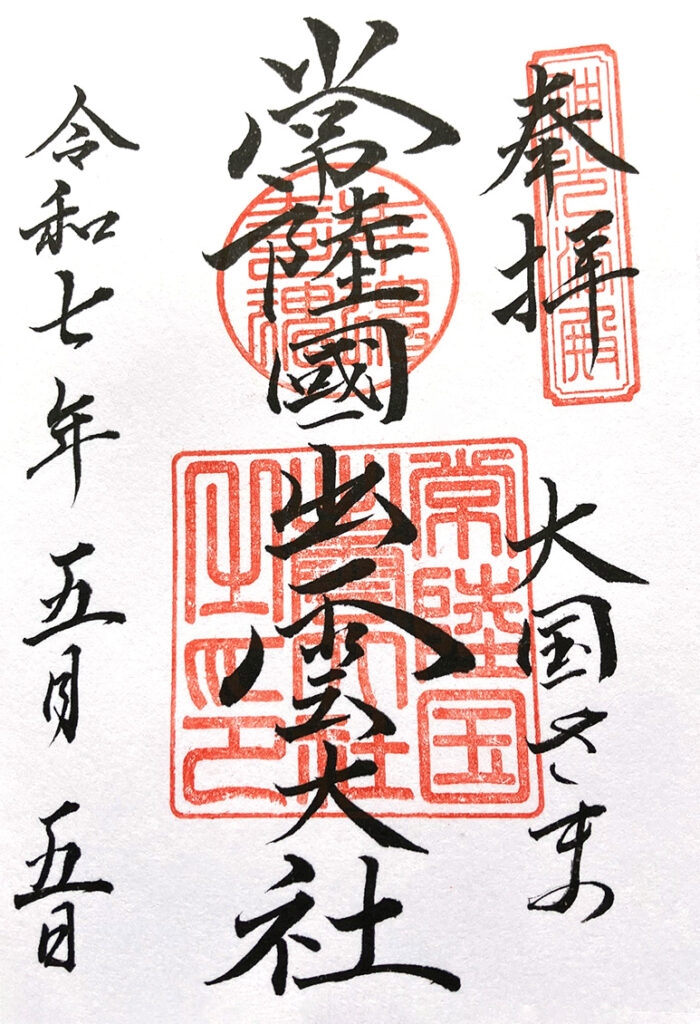 奉拝
大国さま
常陸國出雲大社
令和七年 五月 五日
常陸国
出雲大社
之印